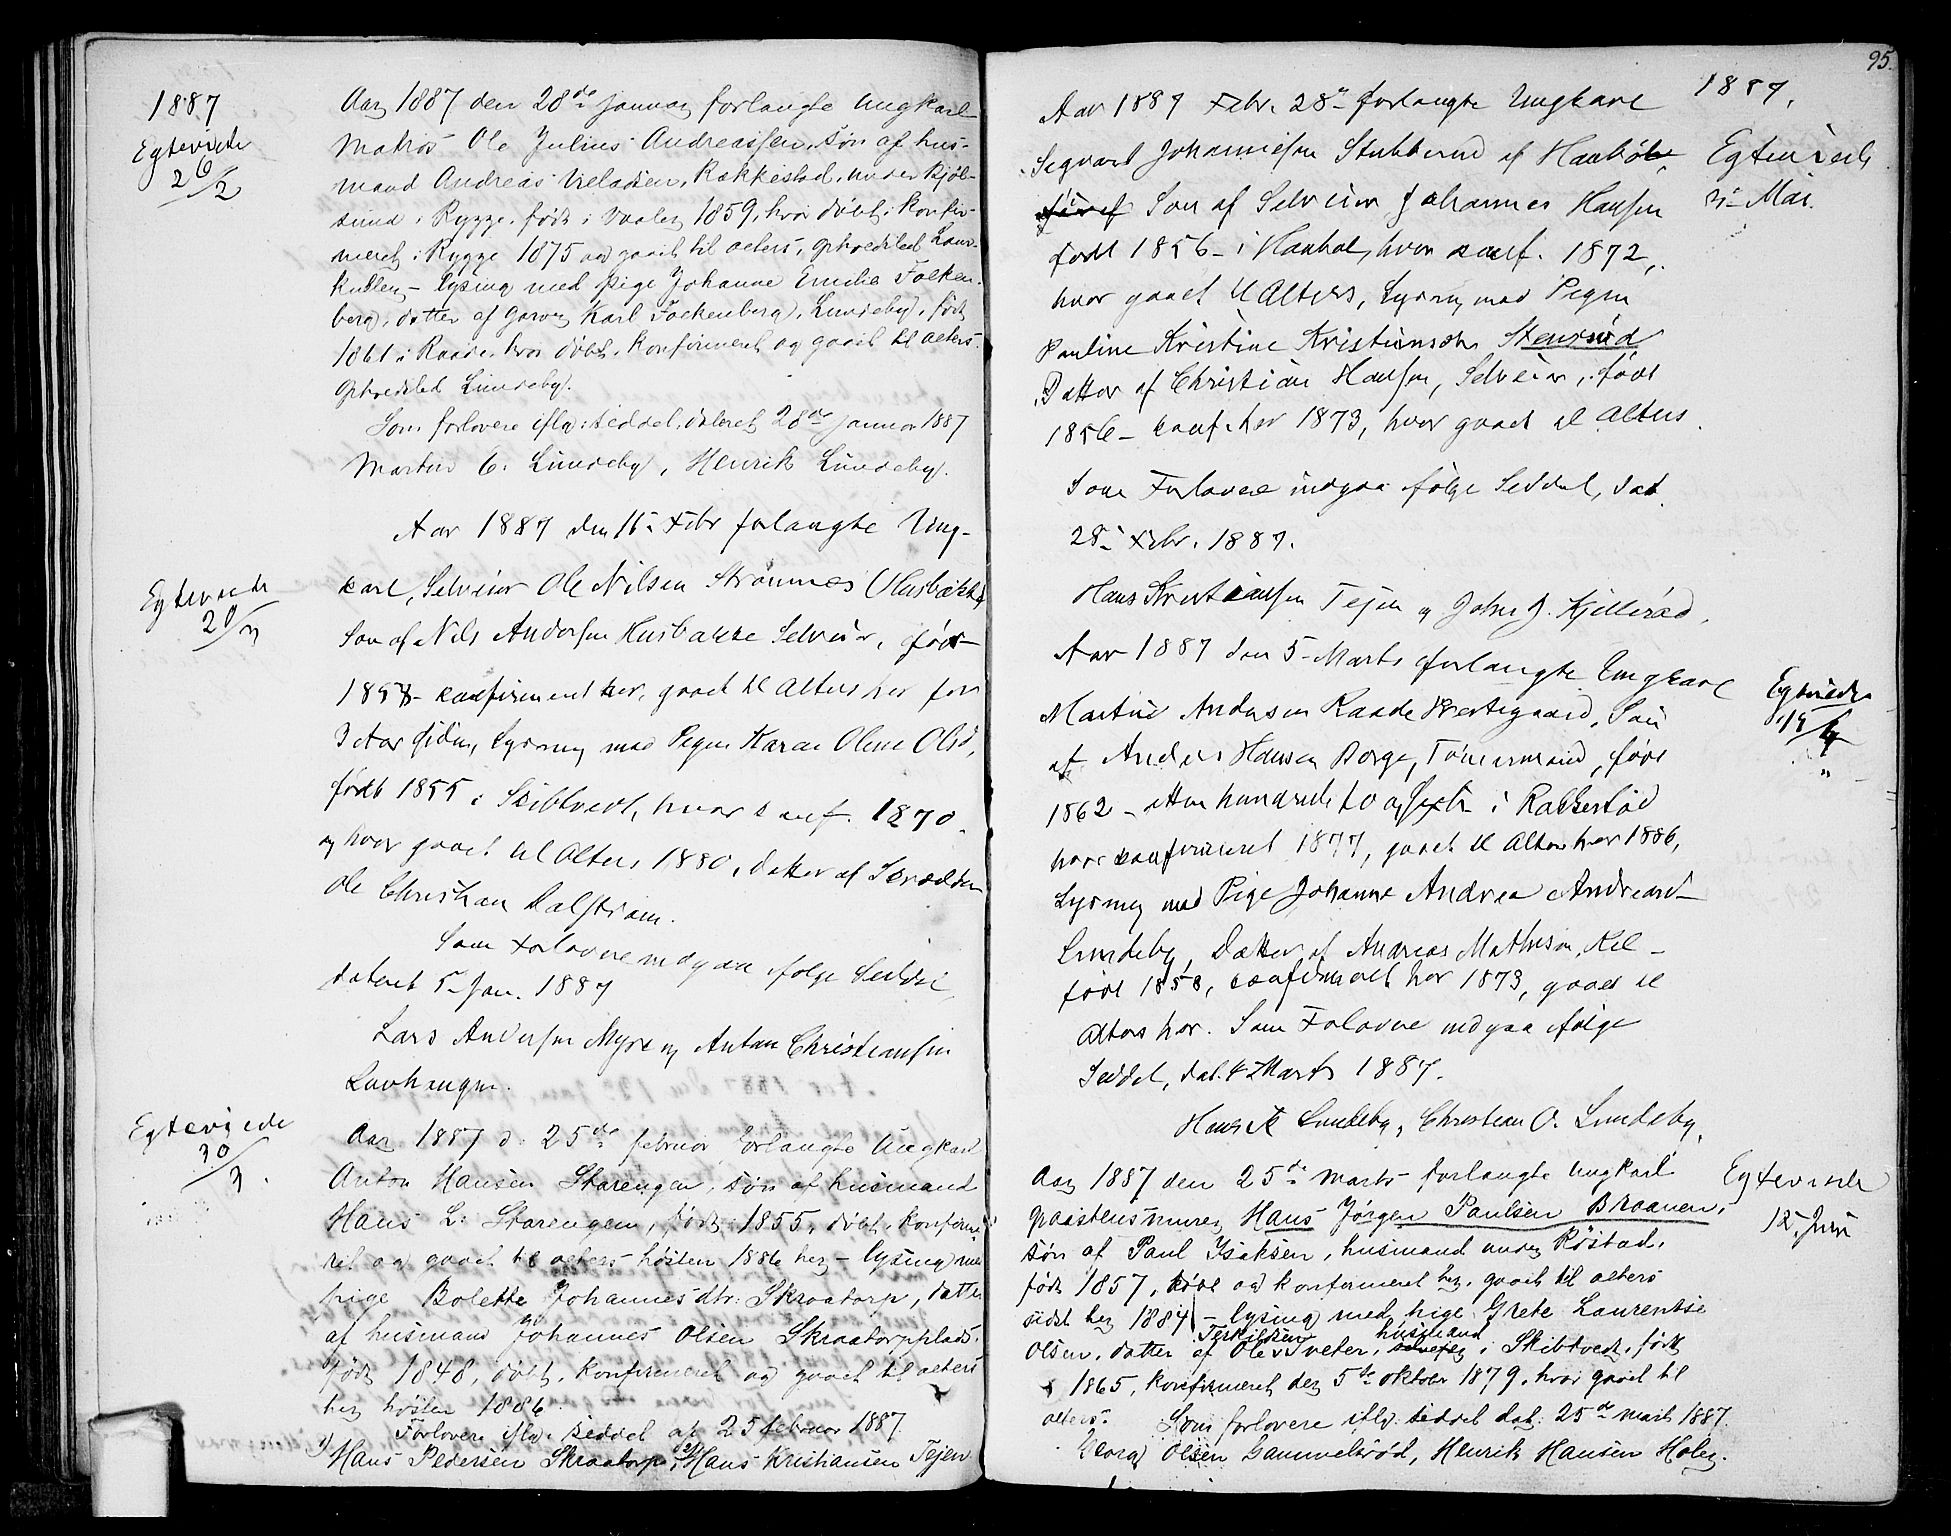 1887
Egteviede
26/2
Aar 1887 den 28de januar forlangte Ungkarl
Matros Ole Julius Andreassen, søn af hus-
mand Andreas Rakkestad, under Kjøl-
sund i Rygge, født i Vaaler 1859, hvor døbt, konfir-
meret i Rygge 1875 og gaaet til alters, opholdssted Laur-
kullen – lysing med pige Johanne Emilie Falken-
berg, datter af garver Karl Falkenberg, Lundeby, født
1861 i Raade, hvor døbt, konfirmeret og gaaet til alters.
Opholdssted Lundeby.
Som forlovere iflg. seddel, dateret 28de januar 1887
Martin C. Lundeby, Henrik Lundeby.
Aar 1887 den 16de Febr forlangte Ung-
Egteviede
20/3
karl, Selveier Ole Nilsen Strømnes (Husbække)
Søn af Nils Andersen Husbække Selveier, født
1858 – confirmeret her, gaaet til Alters her for
3 Aar siden, Lysning med Pigen Karen Oline Olsd,
født 1855 i Skibtvedt, hvor conf. 1870.
og hvor gaaet til Alters 1880, Datter af Skrædder
Ole Christian Dalstrøm.
Som Forlovere indgaa ifølge Seddel,
dateret 5 Jan. 1887
Lars Andersen Myre og Anton Christiansen
Lavhaugen.
Egteviede
30/3.
Aar 1887 d. 25de februar forlangte Ungkarl
Anton Hansen Starengen, søn af husmand
Hans L. Starengen, født 1855, døbt, konfirme-
ret og gaaet til alters høsten 1886 her – lysing med
pige Bolette Johannesdtr. Skraatorp, datter
af husmand Johannes Olsen Skraatorpplads.
født 1848, døbt, konfirmeret og gaaet til alters
her høsten 1886.
Forlovere iflg. seddel af 25 februar 1887.
1) Hans Pedersen Skraatorp, 2) Hans Kristiansen Tejen
95.
1887.
Aar 1887 Febr. 28de forlangte Ungkarl
Segvard Johannesen Stubberud af Haabøl
Egteviede
Mai.
Søn af Selveier Johannes Hansen
født 1856 – i Haabøl, hvor conf. 1872,
hvor gaaet til Alters, Lysning med Pigen
Pauline Kristine Kristiansdtr Stensrud
Datter af Christian Hansen, Selveier, født
1856 – conf. her 1873, hvor gaaet til Alters.
Som Forlovere indgaa ifølge Seddel, dat.
28de Febr. 1887.
Hans Kristiansen Tejen og Johs J. Kjellerød.
Aar 1887 den 5 Marts forlangte Ungkarl
Egteviede
14/4
Martin Andersen Raade Prestegaard, Søn
af Anders Hansen Borge, Tømmermand, født
1862 – atten hundrede to og sexti i Rakkestad
hvor confirmeret 1877, gaaet til Alters her 1886,
Lysning med Pige Johanne Andrea Andreasd
Lundeby, Datter af Andreas Mathisen,
født 1858, confirmeret her 1873, gaaet til
Alters her. Som Forlovere indgaa ifølge
Seddel, dat. 4 Marts 1887.
Hans A Lundeby, Christian O. Lundeby.
Aar 1887 den 25de marts forlangte Ungkarl
Egteviede
12 Juni
graastensmurer Hans Jørgen Paulsen Braanen,
søn af Paul Isaksen, husmand under Røstad,
født 1857, døbt og konfirmeret her, gaaet til alters
sidst her 1884 – lysing med pige Grete Laurentse
Olsen, datter af Ole Terkildsen Tveter, husmand i Skibtvedt, født
1865, konfirmeret der 5te oktober 1879, hvor gaaet til
alters. Som forlovere iflg. seddel dat. 25de marts 1887.
Georg Olsen Gammelsrød, Henrik Hansen Holen.